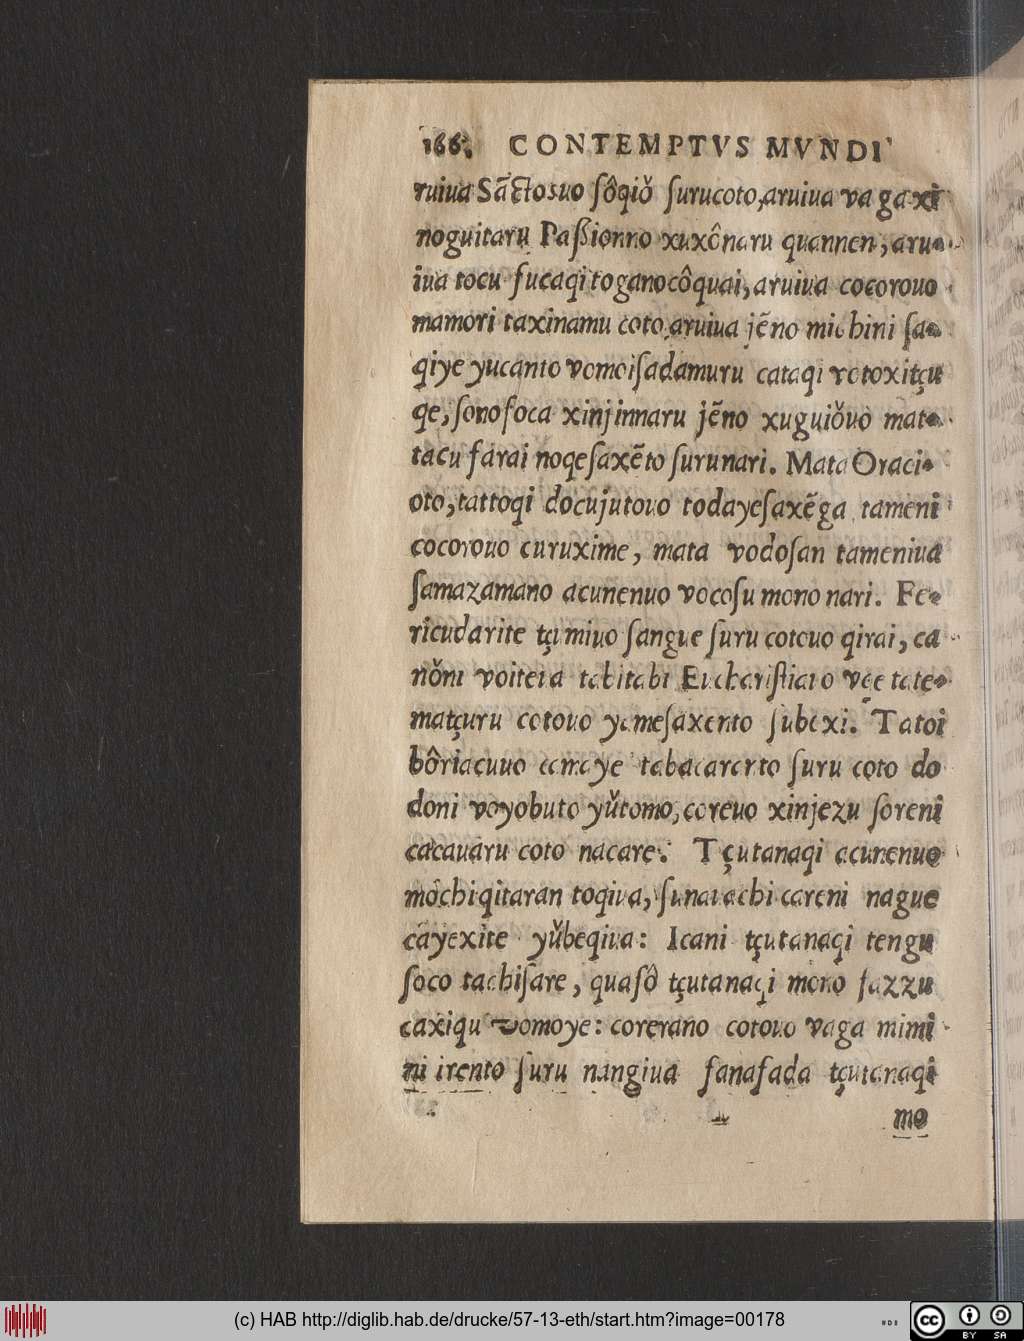 166. CONTEMPTVS MVNDI
ruiua Sãctosuo ſôqiǒ ſurucoto, aruiua va ga xi
noguitaru Paſsionno xuxônaru quannen, aru-
iua tocu fucaqi toganocôquai, aruiua cocorouo
mamori taxinamu coto, aruiua jẽno michini ſa-
qiye yucanto vomoiſadamuru cataqi votoxitçu
qe, ſonofoca xinjinnaru jẽno xuguiǒuo mata-
tacu farai noqeſaxẽto ſurunari. Mata Oraci-
oto, tattoqi docujutouo todayeſaxẽga tameni
cocorouo curuxime, mata vodoſan tameniua
ſamazamano acunenuo vocoſu mono nari. Fe-
ricudarite tçumiuo ſangue ſuru cotouo qirai, ca
nǒni voiteua tabitabi Euchariſtiauo vqe tate-
matçuru cotouo yameſaxento ſubexi. Tatoi
bôriacuuo camaye tabacararento ſuru coto do
doni voyobuto yǔtomo, coreuo xinjezu ſoreni
cacauaru coto nacare. Tçutanaqi acunenuo
mochiqitaran toqiua, ſunauachi careni nague
cayexite yǔbeqiua: Icani tçutanaqi tengu
ſoco tachiſare, quaſô tçutanaqi mono fazzu
caxiqu vomoye: corerano cotouo vaga mimi
ni irento ſuru nangiua fanafada tçutanaqi
mo
(c) HAB http://diglib.hab.de/drucke/57-13-eth/start.htm?image=00178
BY SA